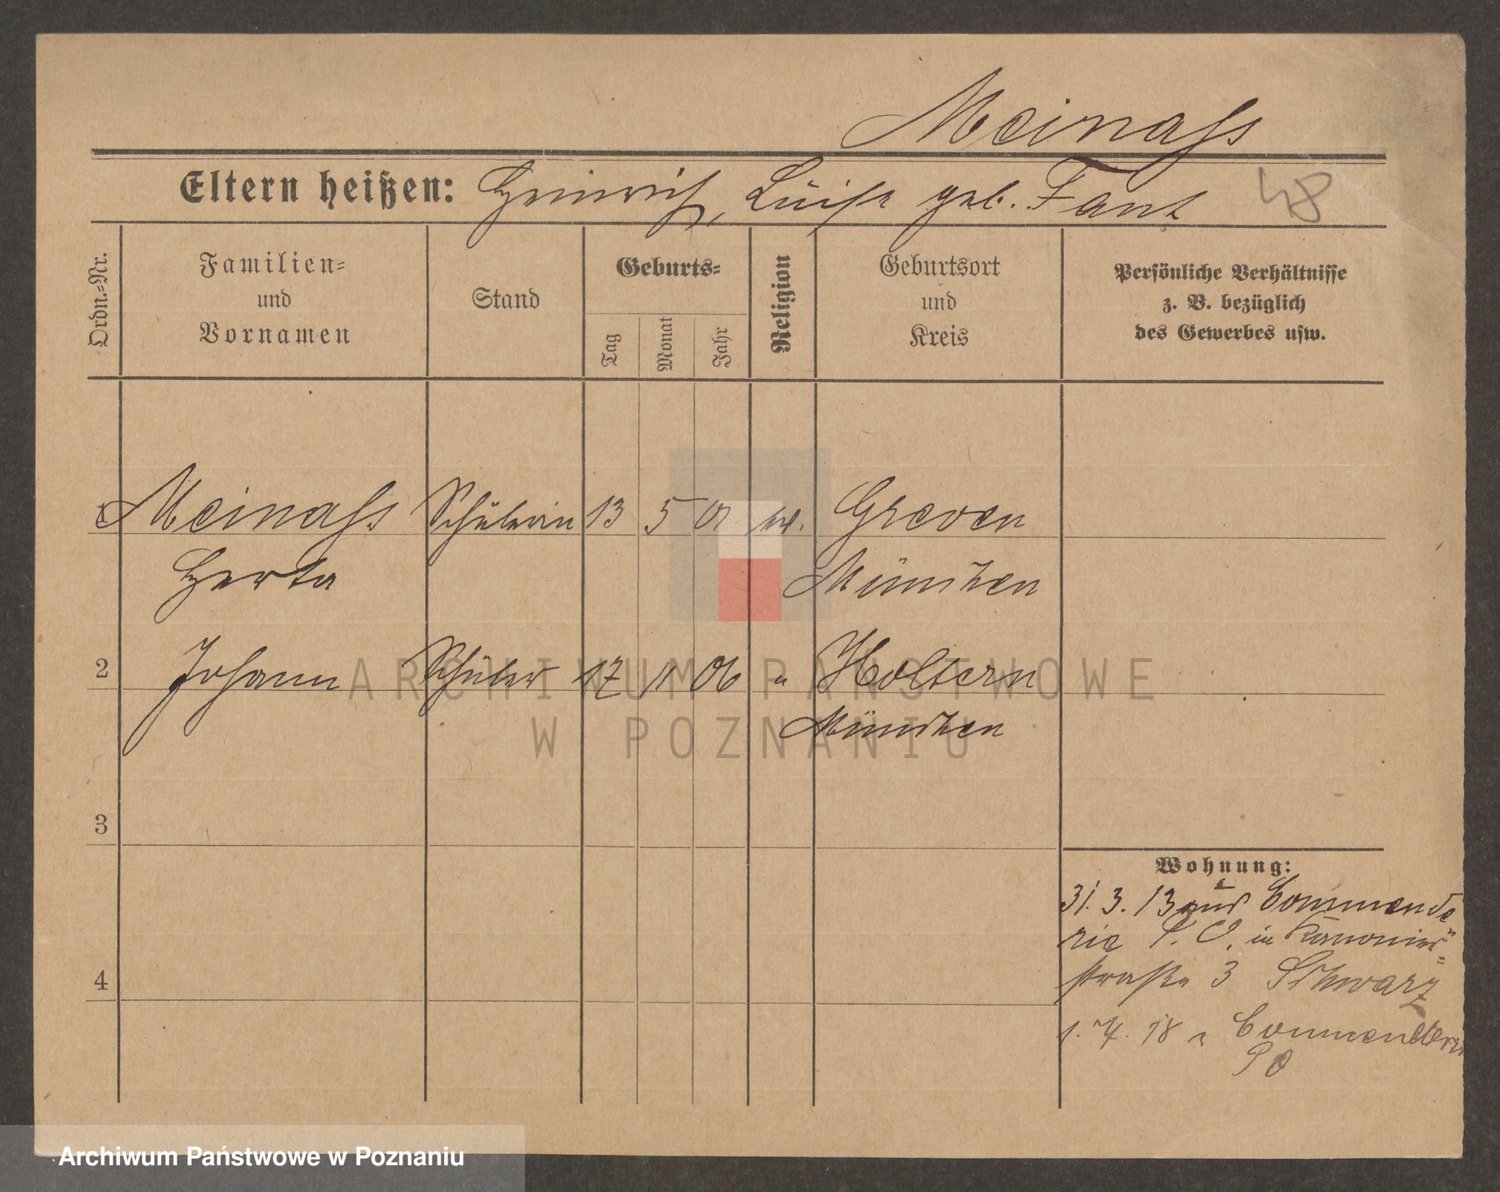 Meinass
Eltern heißen: Heinrich, Luise geb. Fant 48
Ordn.=Nr.
Familien=
und
Vornamen
Stand
Geburts=
Tag
Monat
Jahr
Religion
Geburtsort
und
Kreis
Persönliche Verhältnisse
z. B. bezüglich
des Gewerbes usw.
1 Meinass Schülerin 13 5 01 ev. Greven
Herta München
2 Johann Schüler 17 11 06 " Holtern
München
3
4
Wohnung:
31.3.13 aus Commende
rie P.O. in Kanonier=
straße 3 Schwarz
1.4.18 n Commenderie
PO
ARCHIWUM PAŃSTWOWE
W POZNANIU
Archiwum Państwowe w Poznaniu